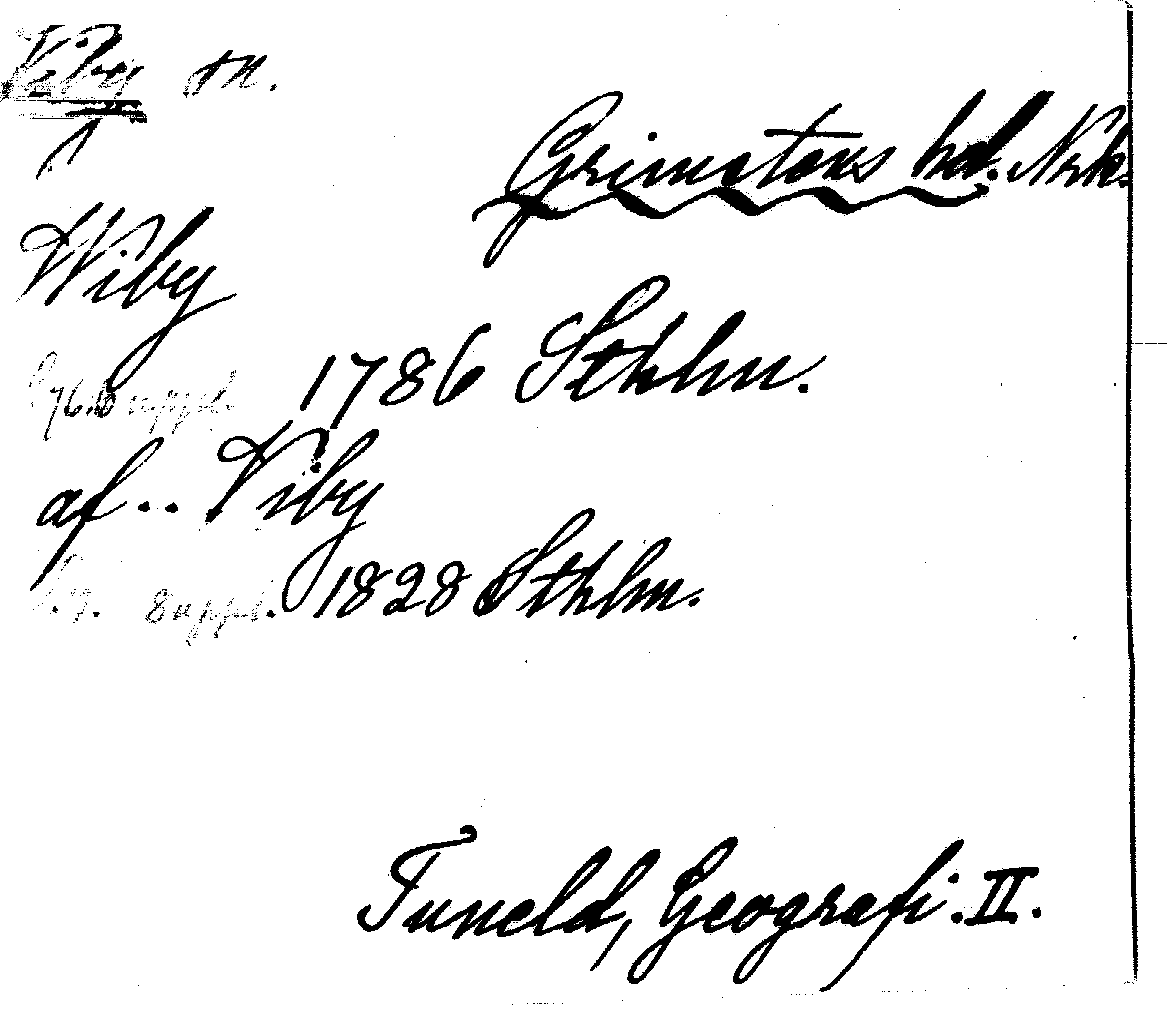 Viby sn.
Grimstens hd. Nrk.
Wiby
1786 Sthlm.
af.. Viby
Suppl. 1828 Sthlm.
Tuneld, Geografi. II.